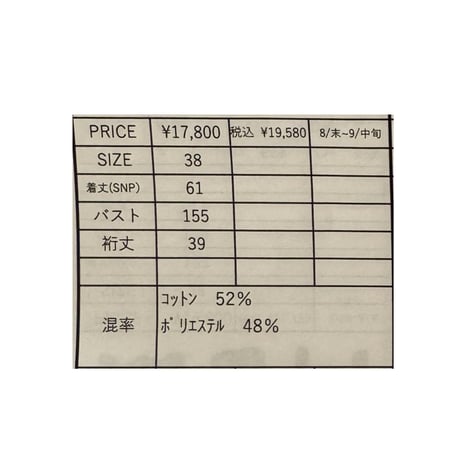 PRICE ¥17,800 税込 ¥19,580 8/末~9/中旬
SIZE 38
着丈(SNP) 61
バスト 155
裄丈 39
混率 ｺｯﾄﾝ 52%
ﾎﾟﾘｴｽﾃﾙ 48%